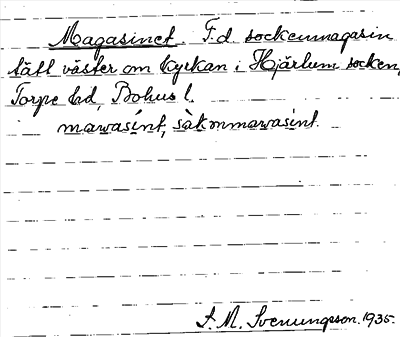 Magasinet. F.d. sockenmagasin
tätt väster om kyrkan i Hjärtum socken,
Torpe hd, Bohus l.
mawasint, såkmmawasint.
S. M. Svenungsson. 1935.